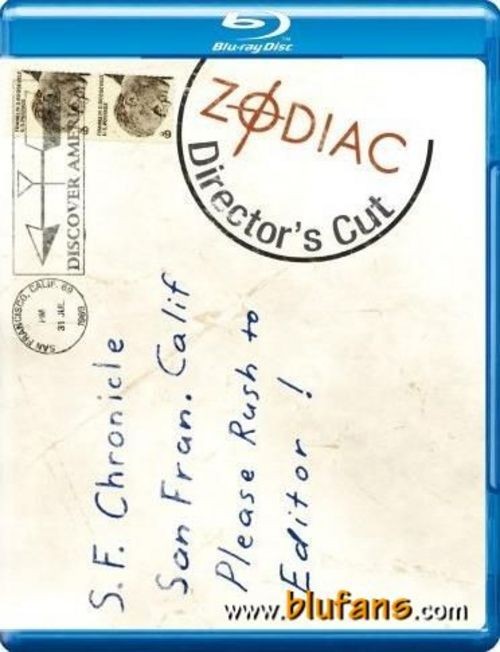 Blu-ray Disc
ZODIAC
Director's Cut
DISCOVER AMERICA
SAN FRANCISCO, CALIF. 69
PM
31 JUL
1969
S.F. Chronicle
San Fran. Calif
Please Rush to
Editor!
www.blufans.com